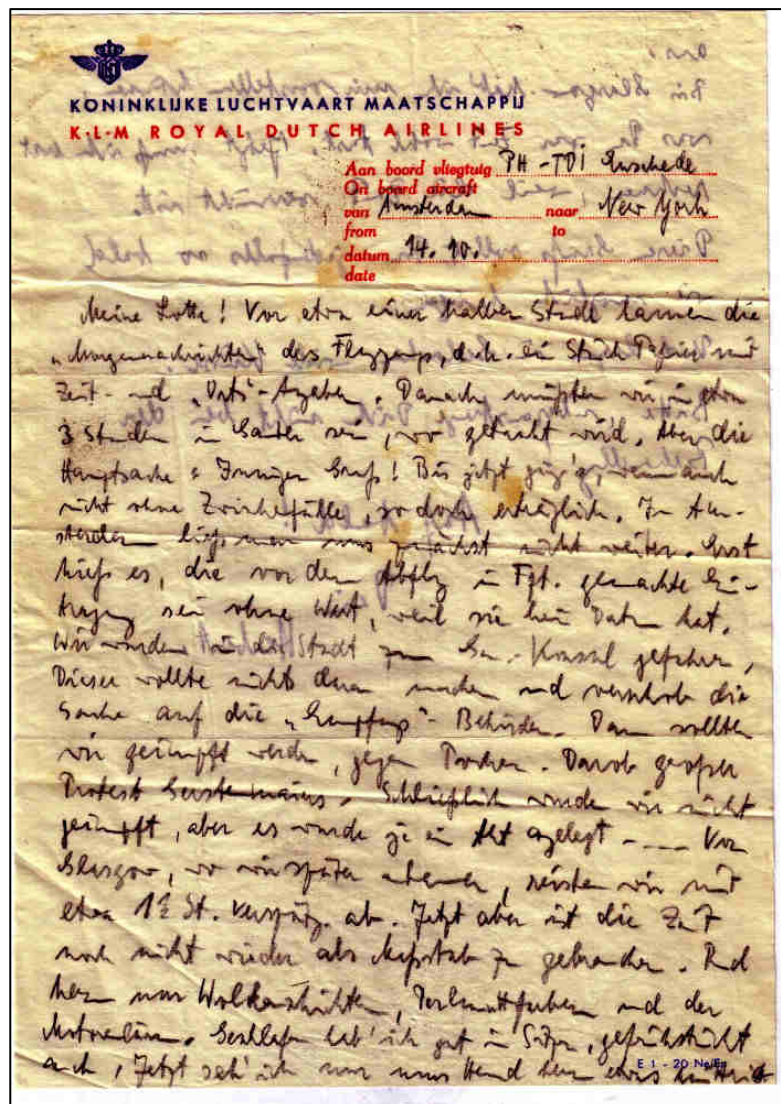 KONINKLIJKE LUCHTVAART MAATSCHAPPIJ
K·L·M ROYAL DUTCH AIRLINES
Aan boord vliegtuig PH-TDI Enschede
On board aircraft
van Amsterdam naar New York
from to
datum 14. 10.
date
Meine Lotte! Vor etwa einer halben Stunde kamen die
„Morgennachrichten" des Flugzeugs, d.h. ein Stück Papier mit
Zeit- und „Orts"-Angaben. Danach müßten wir in etwa
3 Stunden in sein, wo getankt wird. Aber die
Hauptsache: Inniger Gruß! Bis jetzt ging's, wenn auch
nicht ohne Zwischenfälle, so doch erträglich. In Am-
sterdam ließ man uns zunächst nicht weiter. Erst
hieß es, die vor dem Abflug in Fft. gemachte Ein-
tragung sei ohne Wert, weil sie kein Datum hat.
Wir wurden in der Stadt zum Gen.-Konsul gefahren,
Dieser wollte nichts daran machen und verschob die
Sache auf die „Empfangs"-Behörden. Dann sollten
wir geimpft werden, gegen Pocken. Darob großer
Protest Gerstenmaiers. Schließlich wurde wir nicht
geimpft, aber es wurde je ein Akt angelegt --- Von
Glasgow, wo wir später ankamen, reisten wir mit
etwa 1½ St. Verspätg. ab. Jetzt aber ist die Zeit
noch nicht wieder als Maßstab zu gebrauchen. Rund
herum nur Wolkenschichten, Perlmuttfarben und der
Motorenlärm. Geschlafen hab' ich gut im Sitzen, gefrühstückt
auch, Jetzt seh' ich nur etwas
E 1 - 20 Ne/En